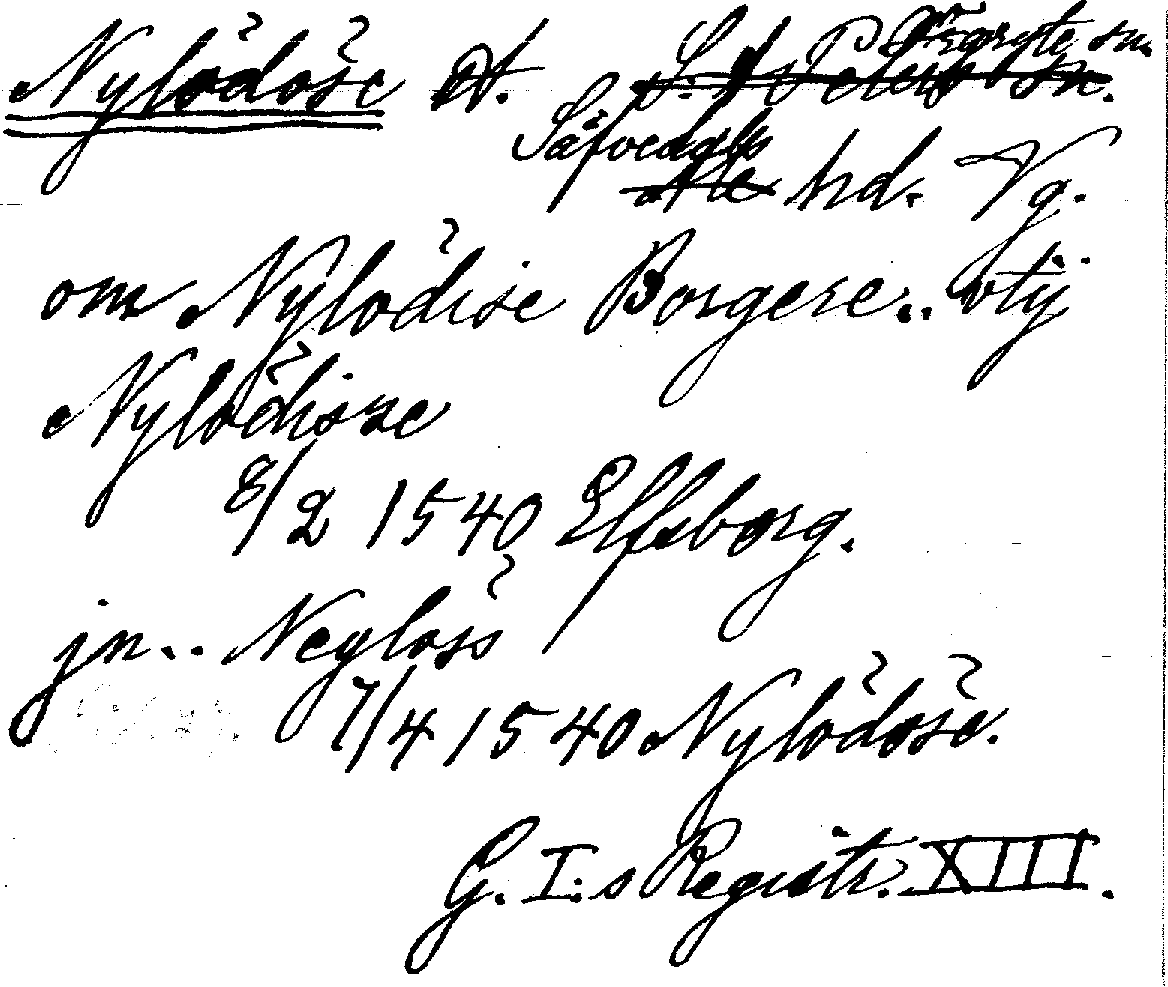 Nylödöse St. S:t Peders sn. Örgryte sn.
Säfvedals Ale hd. Vg.
om Nylödise Borgere.. vtij
Nylödisze
8/2 1540 Elfsborg.
jn.. Neglöss
7/4 1540 Nylödöse.
G. I:s Registr. XIII.